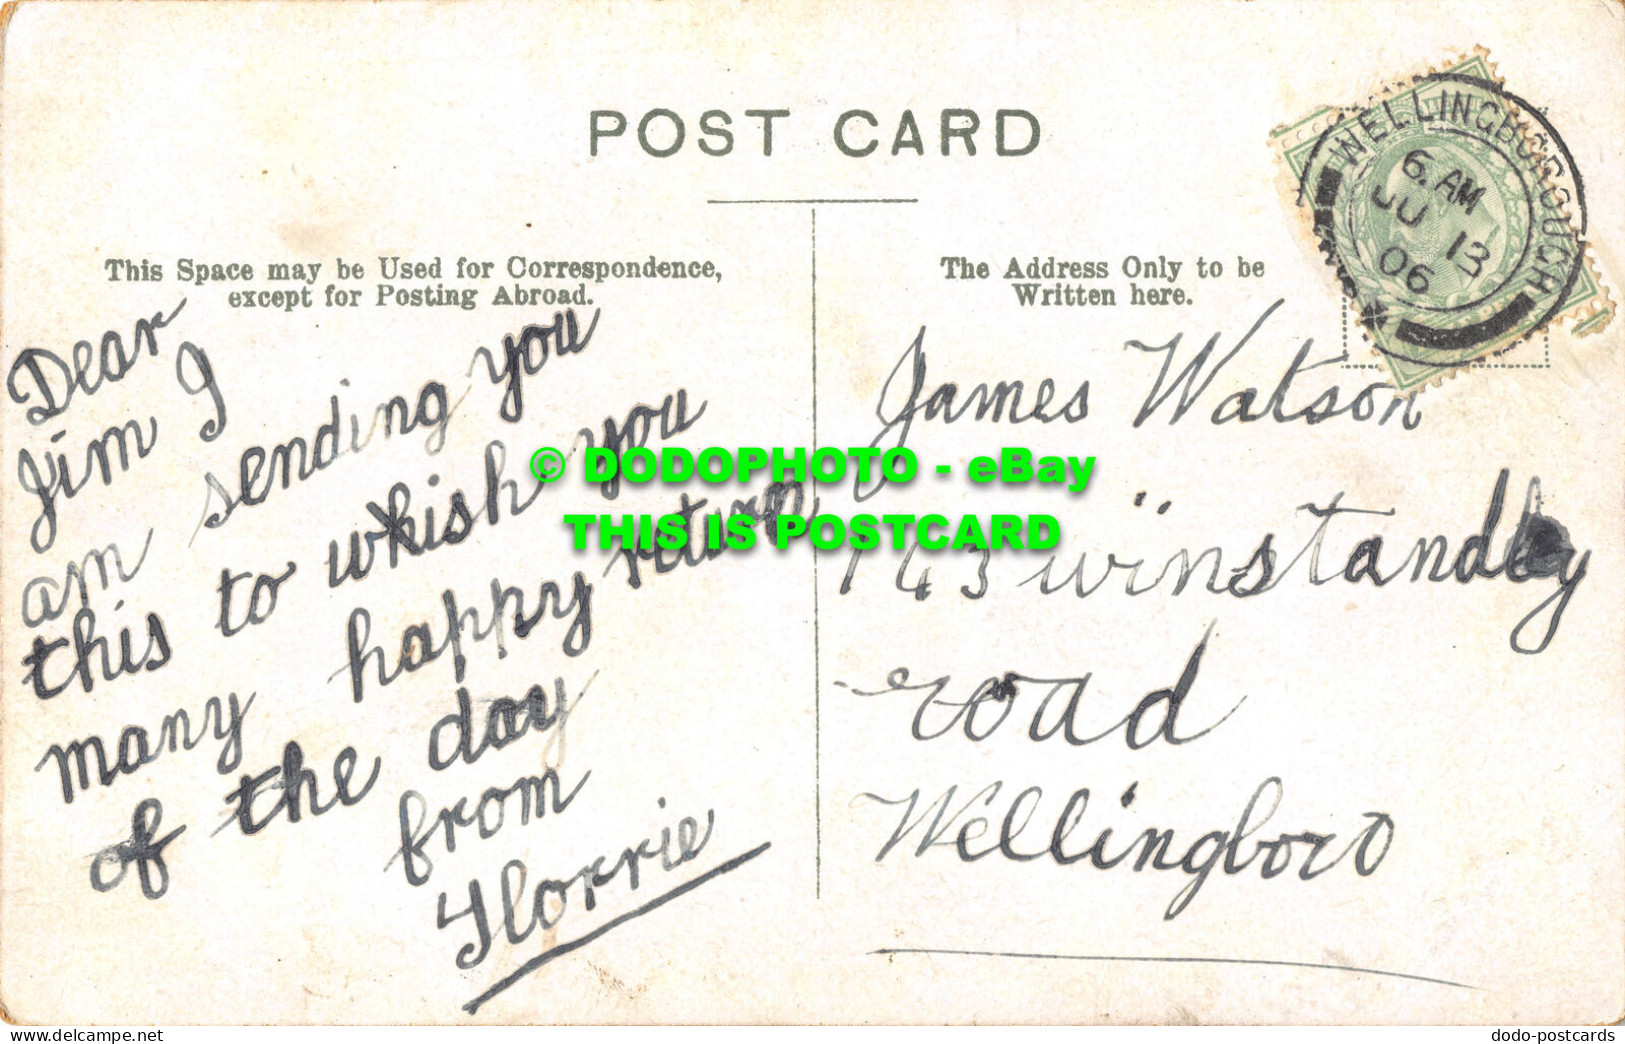 POST CARD
This Space may be Used for Correspondence,
except for Posting Abroad.
The Address Only to be
Written here.
WELLINGBOROUGH
6. AM
JU 13
06
Dear
Jim I
am sending you
this to whish you
many happy return
of the day
from
Florrie
James Watson
143 winstandly
road
Wellingboro
© DODOPHOTO - eBay
THIS IS POSTCARD
www.delcampe.net
dodo-postcards